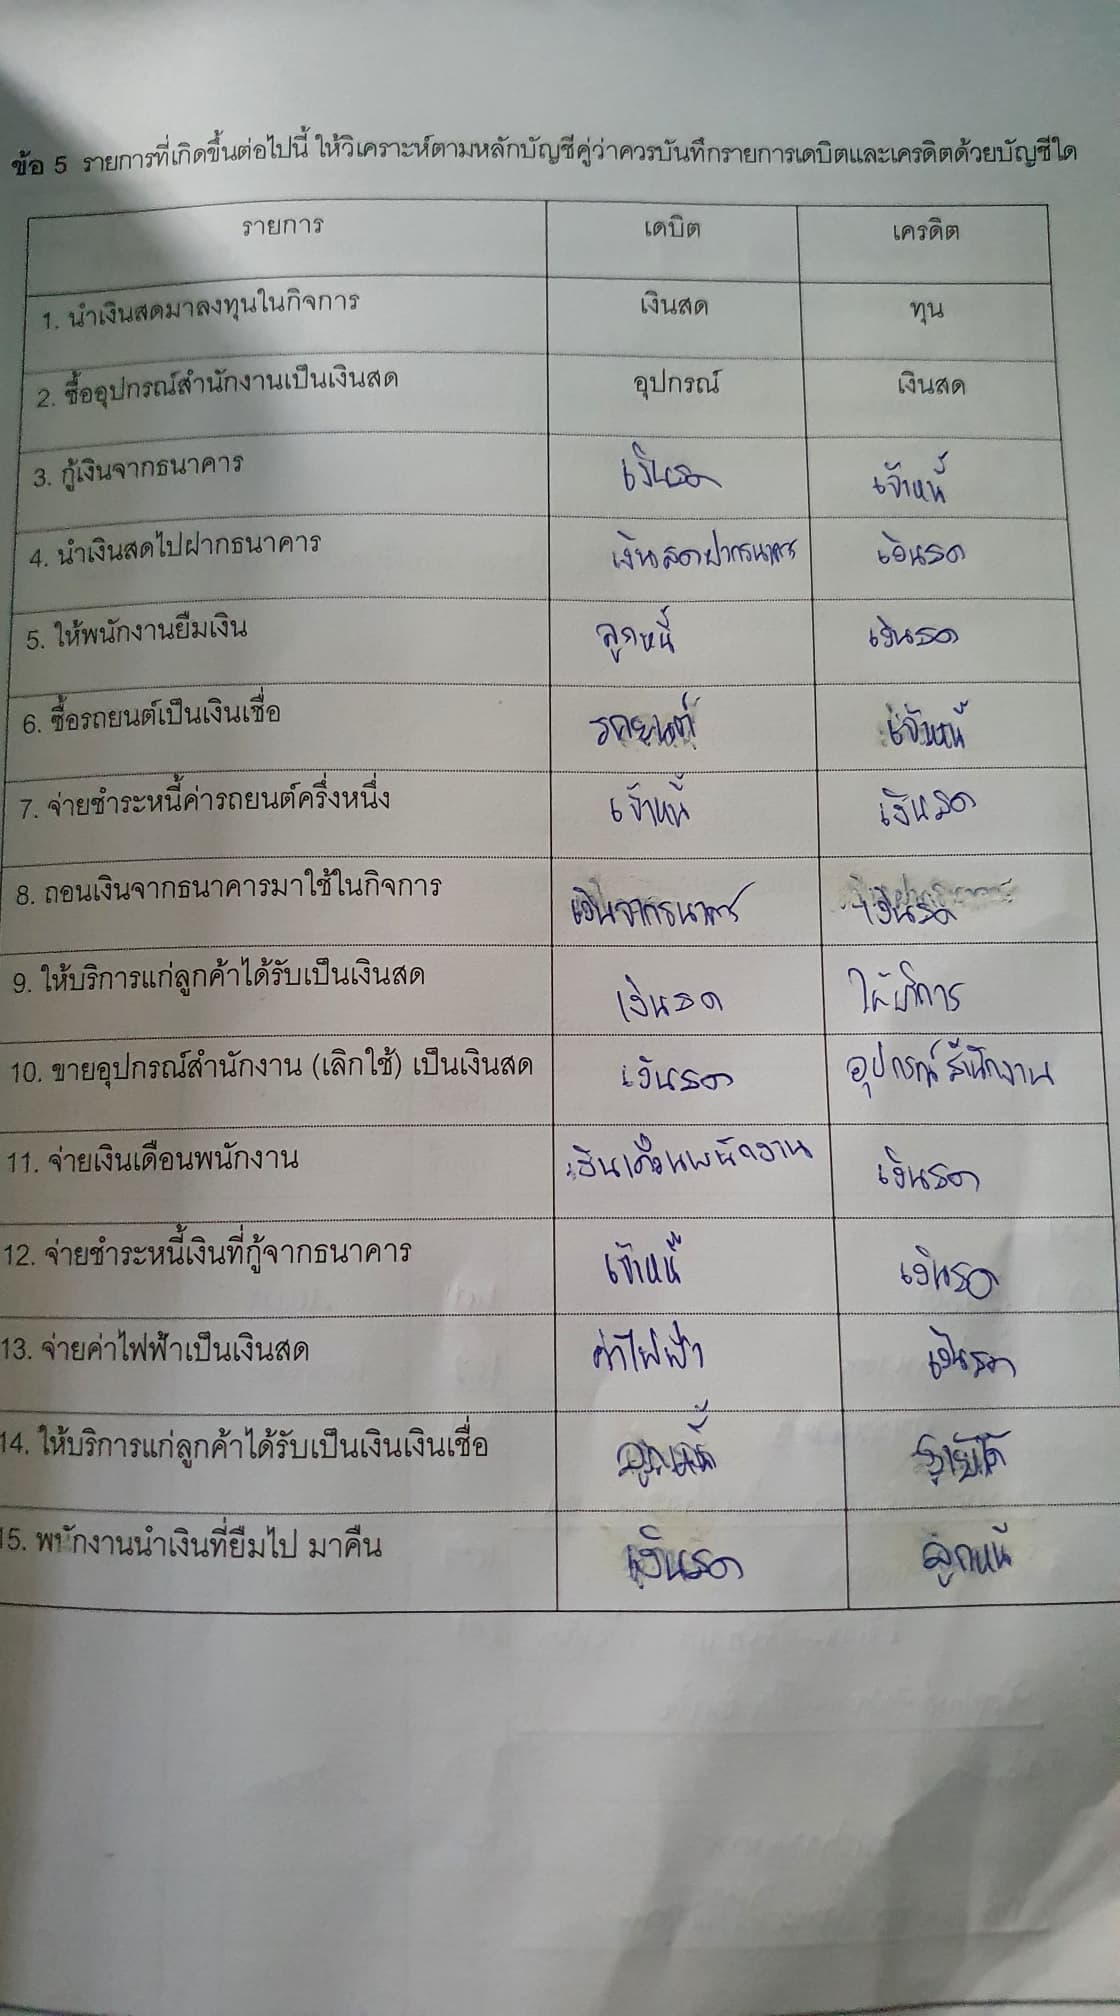 ข้อ 5 รายการที่เกิดขึ้นต่อไปนี้ ให้วิเคราะห์ตามหลักบัญชีคู่ว่าควรบันทึกรายการเดบิตและเครดิตด้วยบัญชีใด
รายการ เดบิต เครดิต
1. นำเงินสดมาลงทุนในกิจการ เงินสด ทุน
2. ซื้ออุปกรณ์สำนักงานเป็นเงินสด อุปกรณ์ เงินสด
3. กู้เงินจากธนาคาร เงินสด เจ้าหนี้
4. นำเงินสดไปฝากธนาคาร เงินสดฝากธนาคาร เงินสด
5. ให้พนักงานยืมเงิน ลูกหนี้ เงินสด
6. ซื้อรถยนต์เป็นเงินเชื่อ รถยนต์ เจ้าหนี้
7. จ่ายชำระหนี้ค่ารถยนต์ครึ่งหนึ่ง เจ้าหนี้ เงินสด
8. ถอนเงินจากธนาคารมาใช้ในกิจการ เงินจากธนาคาร เงินสด
9. ให้บริการแก่ลูกค้าได้รับเป็นเงินสด เงินสด ให้บริการ
10. ขายอุปกรณ์สำนักงาน (เลิกใช้) เป็นเงินสด เงินสด อุปกรณ์สำนักงาน
11. จ่ายเงินเดือนพนักงาน เงินเดือนพนักงาน เงินสด
12. จ่ายชำระหนี้เงินที่กู้จากธนาคาร เจ้าหนี้ เงินสด
13. จ่ายค่าไฟฟ้าเป็นเงินสด ค่าไฟฟ้า เงินสด
14. ให้บริการแก่ลูกค้าได้รับเป็นเงินเงินเชื่อ ลูกหนี้ รายได้
15. พนักงานนำเงินที่ยืมไป มาคืน เงินสด ลูกหนี้